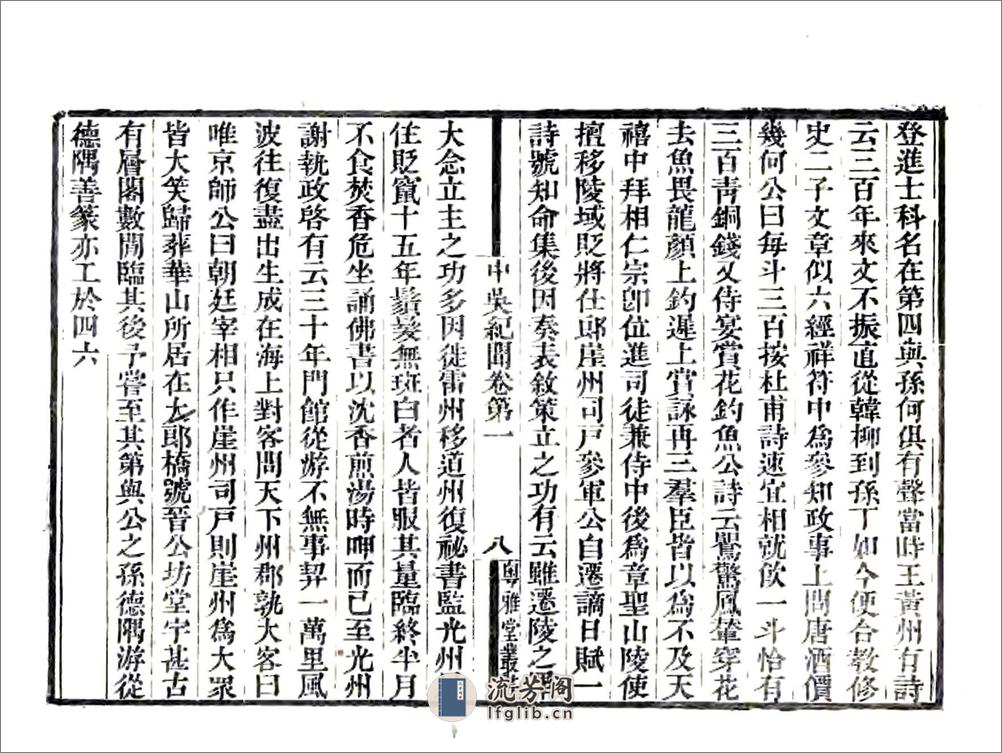 登進士科名在第四與孫何俱有聲當時王黃州有詩
云三百年來文不振直從韓柳到孫丁如今便合教修
史二子文章似六經祥符中爲參知政事上問唐酒價
幾何公曰每斗三百按杜甫詩速宜相就飲一斗恰有
三百靑銅錢又侍宴賞花釣魚公詩云鶯驚鳳輦穿花
去魚畏龍顏上釣遲上賞詠再三羣臣皆以爲不及天
禧中拜相仁宗卽位進司徒兼侍中後爲章聖山陵使
擅移陵域貶將仕郎崖州司戶參軍公自遷謫日賦一
詩號知命集後因奏表敘策立之功有云雖遷陵之
中吳紀聞卷第一
八
粵雅堂叢
大念立主之功多因徙雷州移道州復祕書監光州
任貶竄十五年鬚髮無斑白者人皆服其量臨終半月
不食焚香危坐誦佛書以沈香煎湯時呷而已至光州
謝執政啓有云三十年門館從游不無事契一萬里風
波往復盡出生成在海上對客問天下州郡孰大客曰
唯京師公曰朝廷宰相只作崖州司戶則崖州爲大眾
皆大笑歸葬華山所居在大郎橋號晉公坊堂宇甚古
有層閣數間臨其後予嘗至其第與公之孫德隅游從
德隅善篆亦工於四六
流芳閣
lfglib.cn